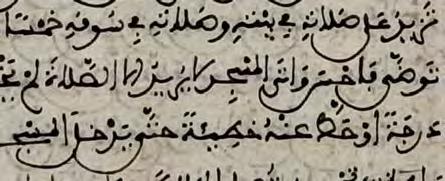 تزيد على صلاته في بيته وصلاته في سوقه خمسا
توضى فاحسن واتى المسجد لا يريد الا الصلاة لم يخ
درجة او حط عنه خطيئة حتى يدخل المسجد